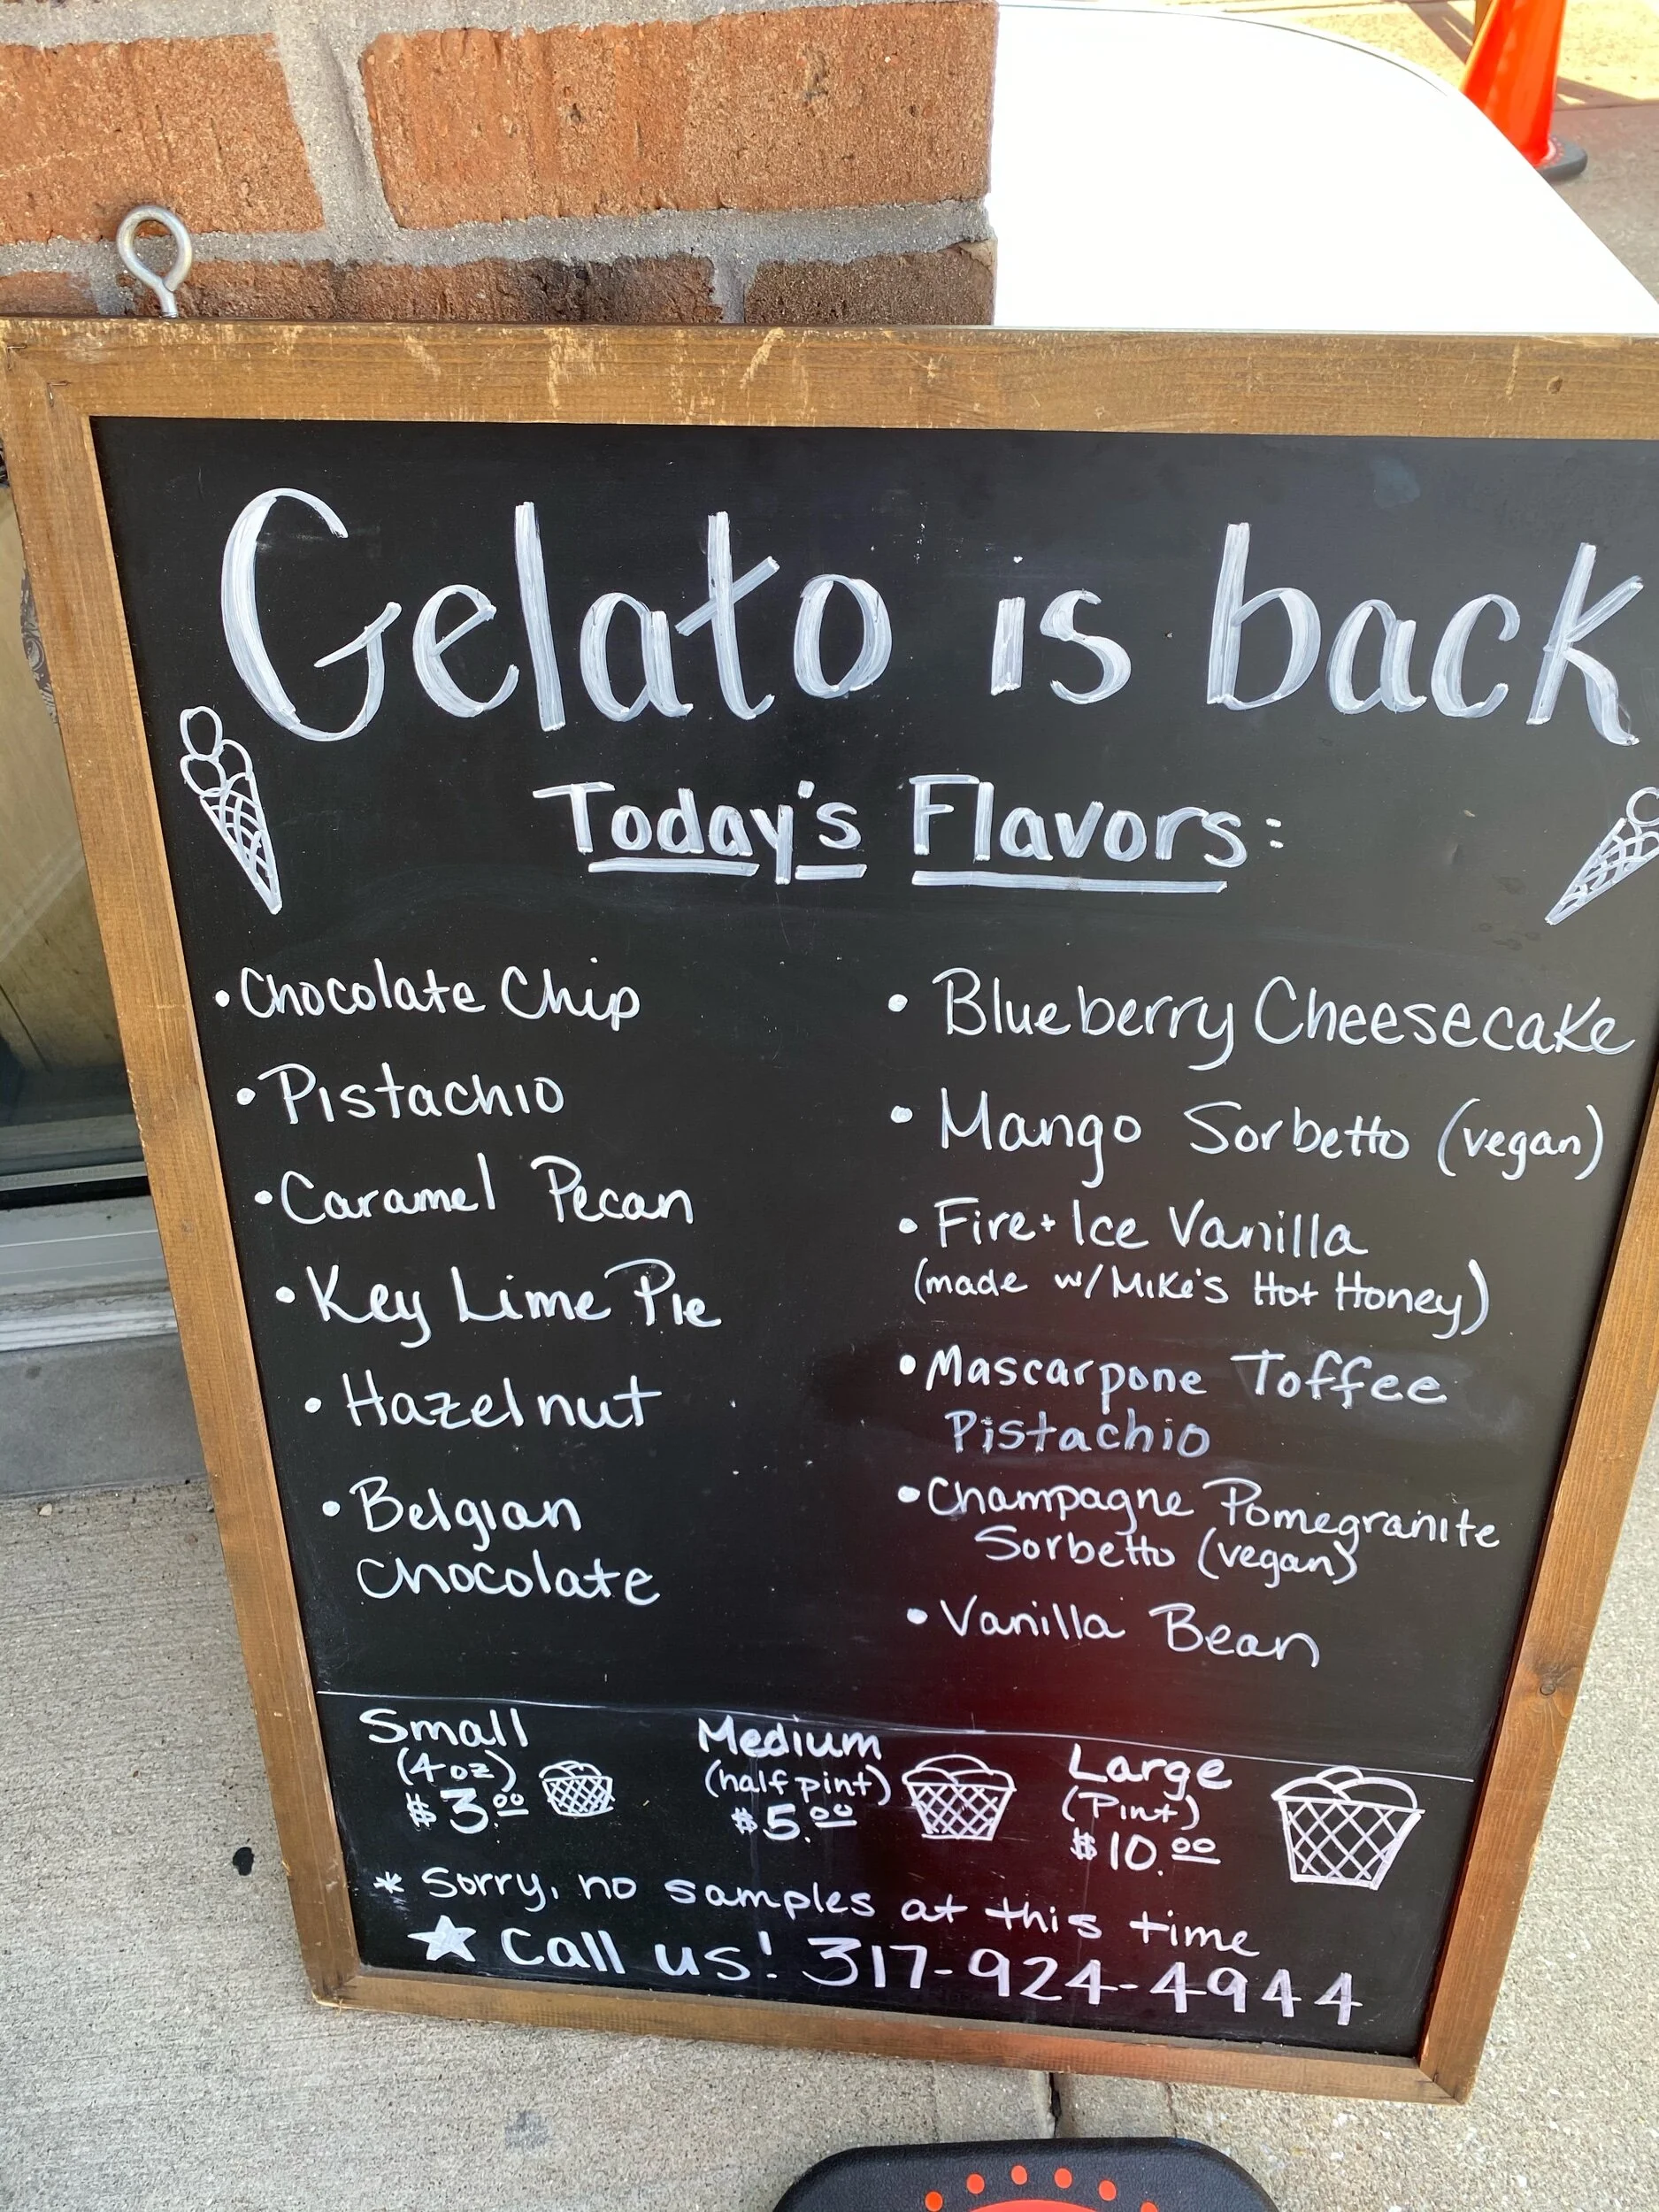 Gelato is back
Today's Flavors:
• Chocolate Chip
• Pistachio
• Caramel Pecan
• Key Lime Pie
• Hazelnut
• Belgian
Chocolate
• Blueberry Cheesecake
• Mango Sorbetto (vegan)
• Fire + Ice Vanilla
(made w/ Mike's Hot Honey)
• Mascarpone Toffee
Pistachio
• Champagne Pomegranite
Sorbetto (vegan)
• Vanilla Bean
Small
(4oz)
$3.00
Medium
(half pint)
$5.00
Large
(Pint)
$10.00
* Sorry, no samples at this time
★ Call us! 317-924-4944